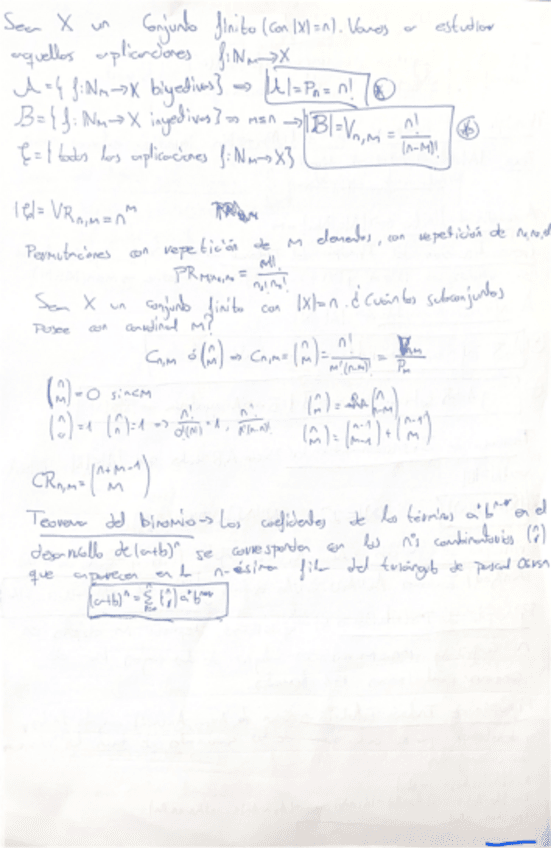 Sea X un conjunto finito (con |X|=n). Vamos a estudiar
aquellas aplicaciones f:ℕₘ→X
A={f:ℕₘ→X biyectivas} ⇒ |A|=Pₙ=n!
B={f:ℕₘ→X inyectivas} ⇒ m≤n → |B|=Vₙ,ₘ = n!/(n-m)!
C={todas las aplicaciones f:ℕₘ→X}
|C|=VRₙ,ₘ=n^m
Permutaciones con repetición de m elementos, con repetición de
PR = m!/n₁!n₂!
Sea X un conjunto finito con |X|=n. ¿Cuántos subconjuntos
posee con cardinal m?
Cₙ,ₘ ó (n m) ⇒ Cₙ,ₘ=(n m)= n!/m!(n-m)! = Vₙ,ₘ/Pₘ
(n m)=0 si n<m (n m)=(n n-m)
(n 0)=1 (n n)=1 ⇒ n!/0!(n)! =1, n!/n!(n-n)! (n m)=(n-1 m-1)+(n-1 m)
CRₙ,ₘ=(n+m-1 m)
Teorema del binomio→ Los coeficientes de los términos aʳbⁿ⁻ʳ en el
desarrollo de (a+b)ⁿ se corresponden con los nºs combinatorios (n r)
que aparecen en la n-ésima fila del triángulo de pascal 0≤r≤n
(a+b)ⁿ = Σ (n r) aʳbⁿ⁻ʳ